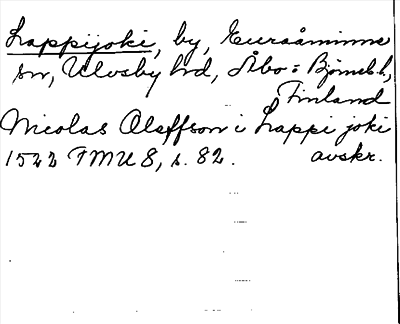 Lappijoki, by, Euraåminne
sn, Ulvsby hd, Åbo = Björneb. l.,
Finland
Nicolas Olsffson i Lappi joki
1522 FMU 8, s. 82. avskr.